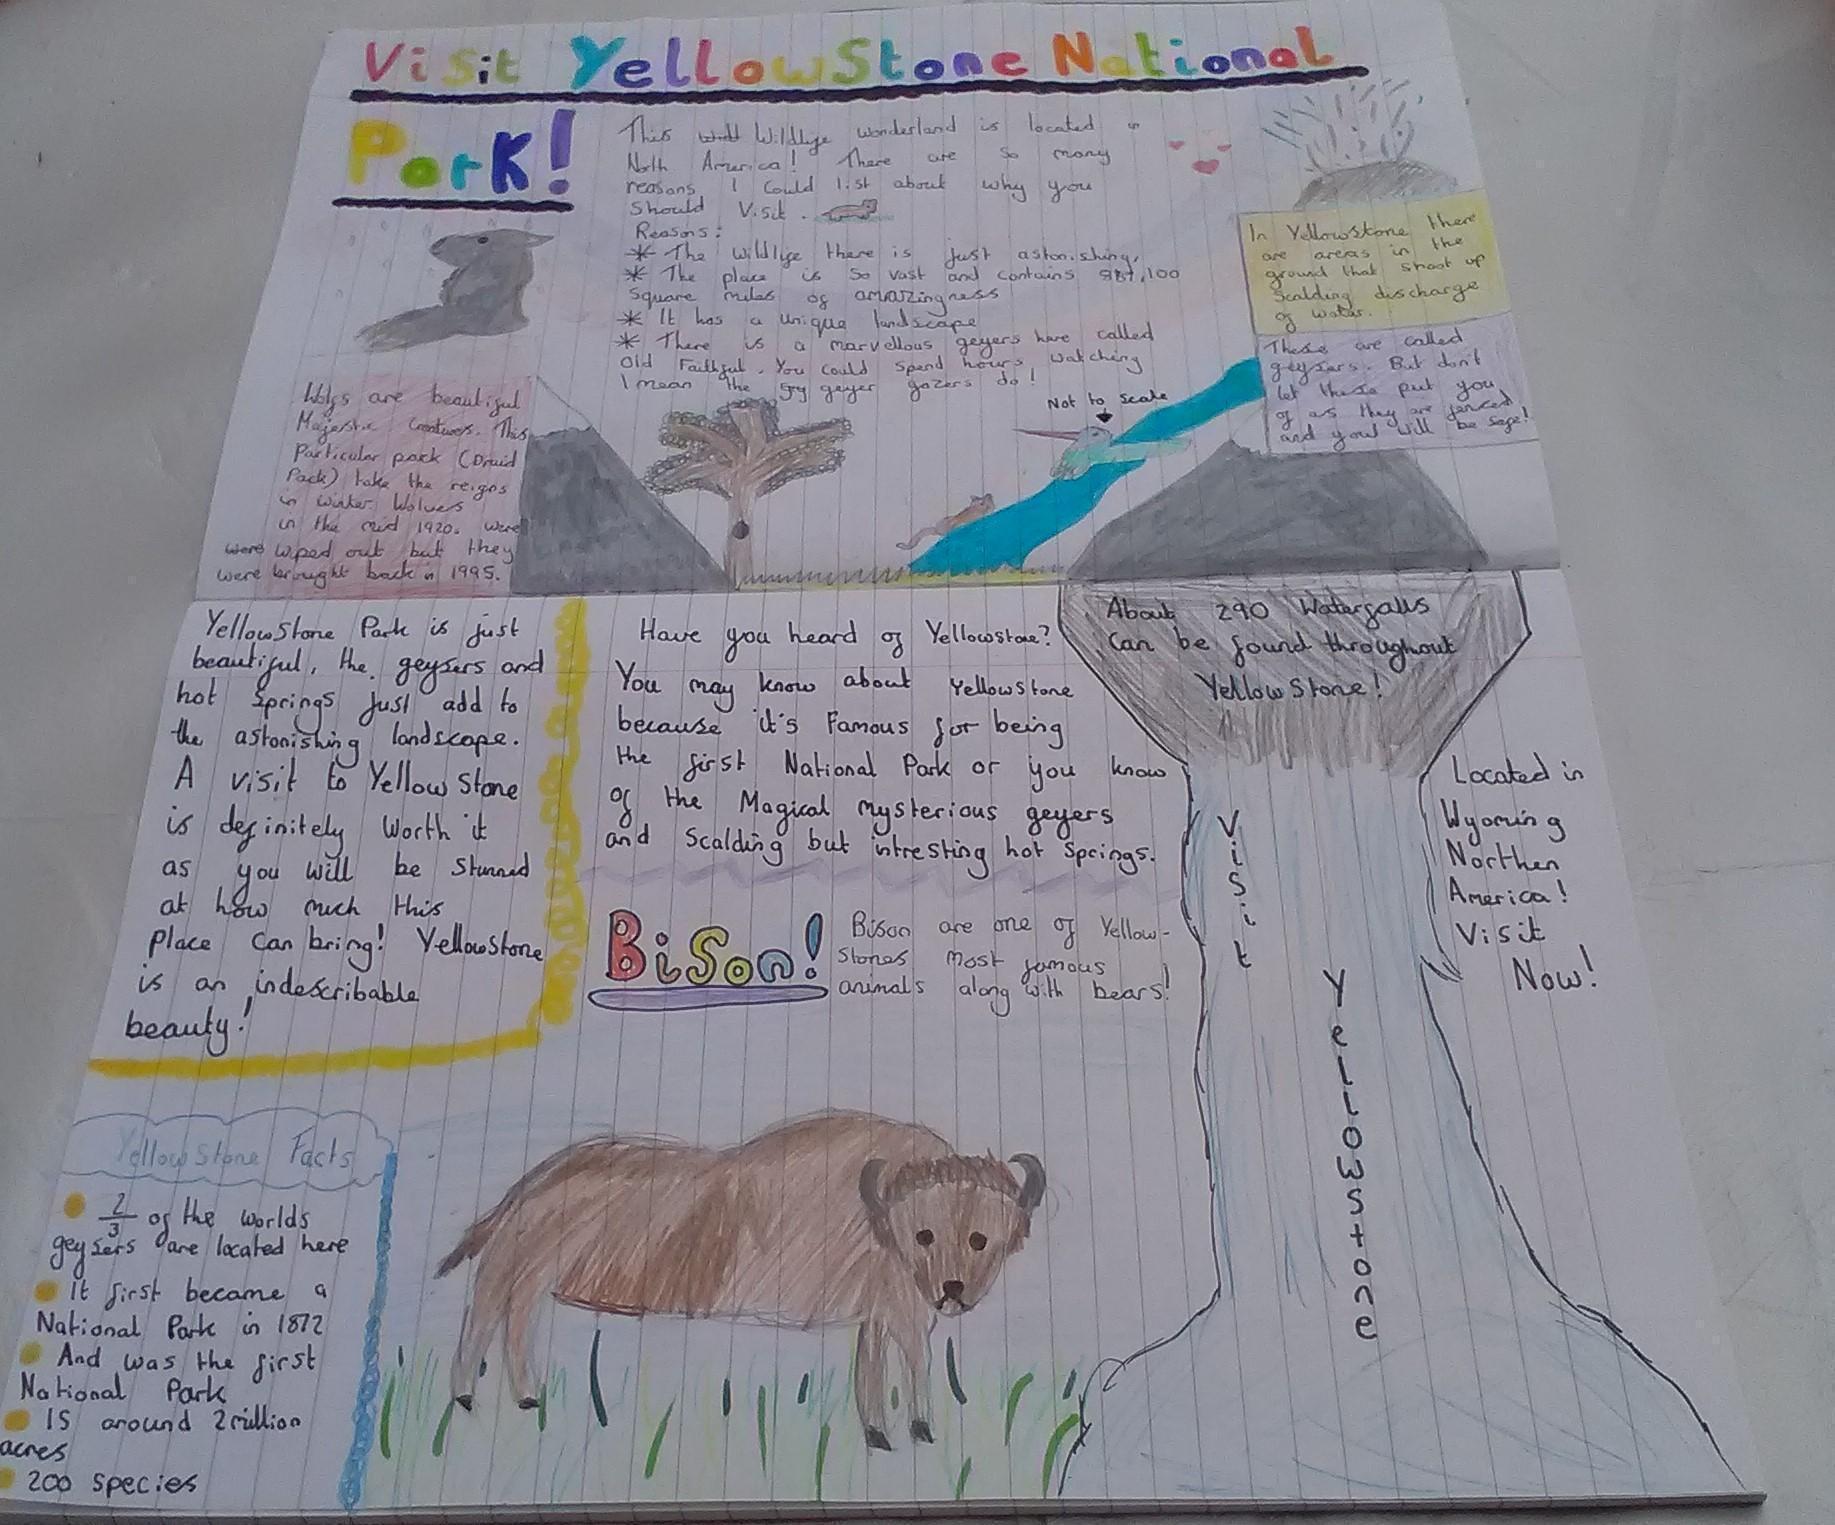 Visit YellowStone National
Park!
This Wildlife wonderland is located in
North America! There are so many
reasons I could list about why you
should Visit.
Reasons:
* The wildlife there is just astonishing,
* The place is so vast and contains 987,100
square miles of amazingness
* It has a unique landscape
* There is a marvellous geyers here called
Old Faithful. You could spend hours watching
I mean the geyer gazers do!
In Yellowstone there
are areas in the
ground that shoot up
scalding discharge
of water.
These are called
geysers. But don't
let these put you
of as they are fenced
and you will be safe!
Not to scale
Wolfs are beautiful
Majestic creatures. This
Particular pack (Druid
Pack) take the reigns
in winter. Wolves
in the mid 1920. were
were wiped out but they
were brought back in 1995.
YellowStone Park is just
beautiful, the geysers and
hot Springs Just add to
the astonishing landscape.
A visit to Yellow Stone
is definitely worth it
as you will be stunned
at how much this
Place can bring! YellowStone
is an indescribable
beauty!
Have you heard of Yellowstone?
You may know about Yellowstone
because it's Famous for being
the first National Park or you know
of the Magical mysterious geyers
and Scalding but intresting hot Springs.
BiSon!
Bison are one of Yellow-
Stones most famous
animals along with bears!
About 290 Waterfalls
Can be found throughout
Yellow Stone!
Visit
Yellowstone
Located in
Wyoming
Northen
America!
Visit
Now!
YellowStone Facts
2/3 of the worlds
geysers are located here
It first became a
National Park in 1872
And was the first
National Park
IS around 2 million
acres
200 species